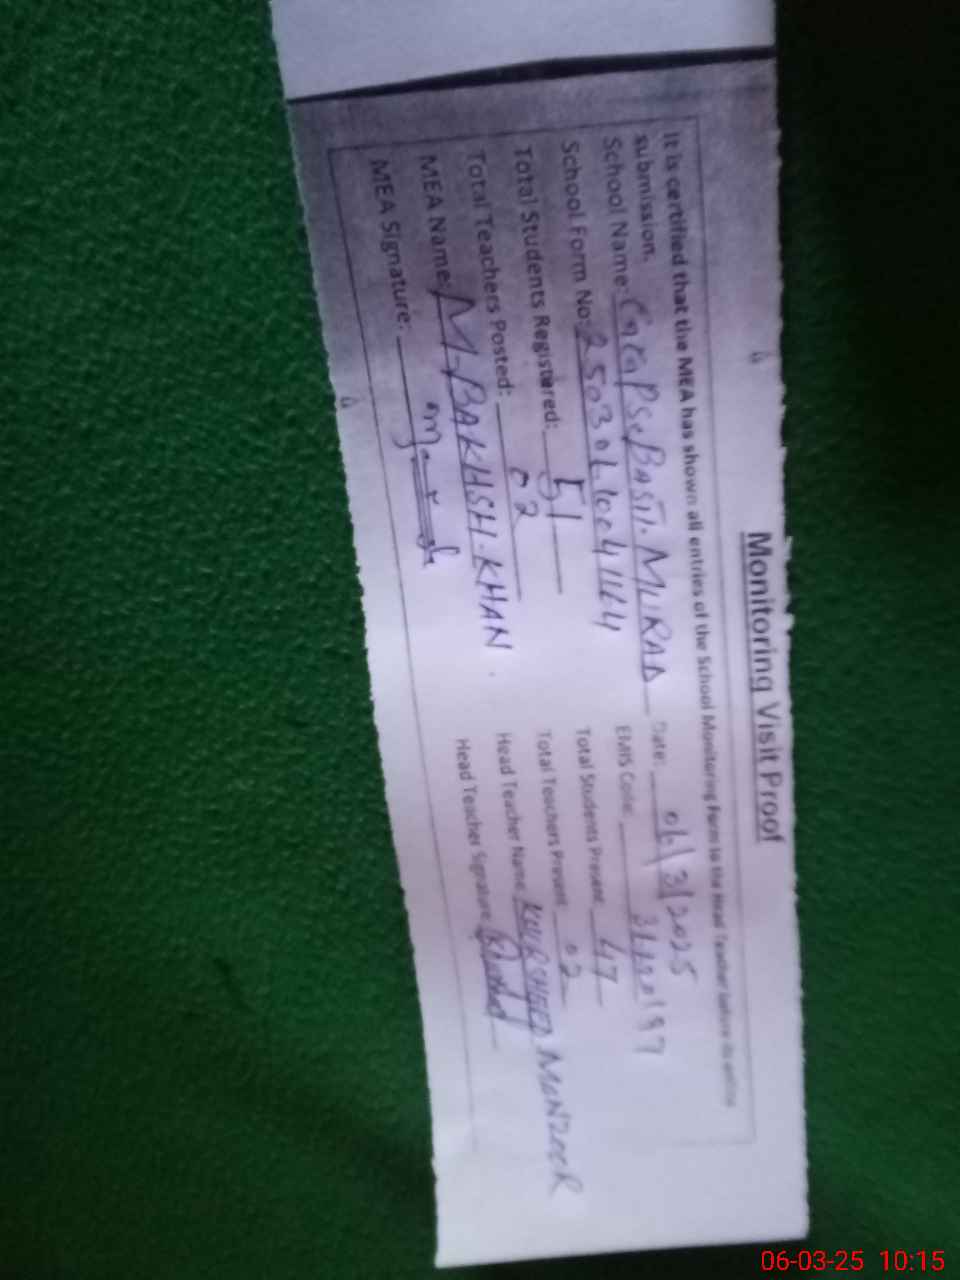 Monitoring Visit Proof
It is certified that the MEA has shown all entries of the School Monitoring Form to the Head Teacher before its online
submission.
School Name: BASTI. MURAD Date: 06/3/2025
School Form No: EMIS Code:
Total Students Registered: 51 Total Students Present: 47
Total Teachers Posted: 02 Total Teachers Present: 02
MEA Name: M-BAKHSH-KHAN. Head Teacher Name: KHURSHEED MANZOOR
MEA Signature: Head Teacher Signature:
06-03-25 10:15